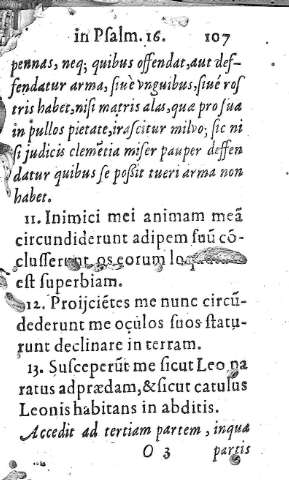 in Psalm. 16. 107
pennas, neq; quibus offendat, aut def-
fendatur arma, siuè vnguibus, siué ros
tris habet, nisi matris alas, quæ pro sua
in pullos pietate, irascitur miluo; sic ni
si judicis clemẽtia miser pauper deffen
datur quibus se possit tueri arma non
habet.
11. Inimici mei animam meã
circundiderunt adipem suũ cõ-
clusserunt, os eorum
est superbiam.
12. Proijciẽtes me nunc circũ-
dederunt me oculos suos statu-
runt declinare in terram.
13. Susceperũt me sicut Leo pa
ratus ad prædam, & sicut catulus
Leonis habitans in abditis.
Accedit ad tertiam partem, inqua
O 3 partis